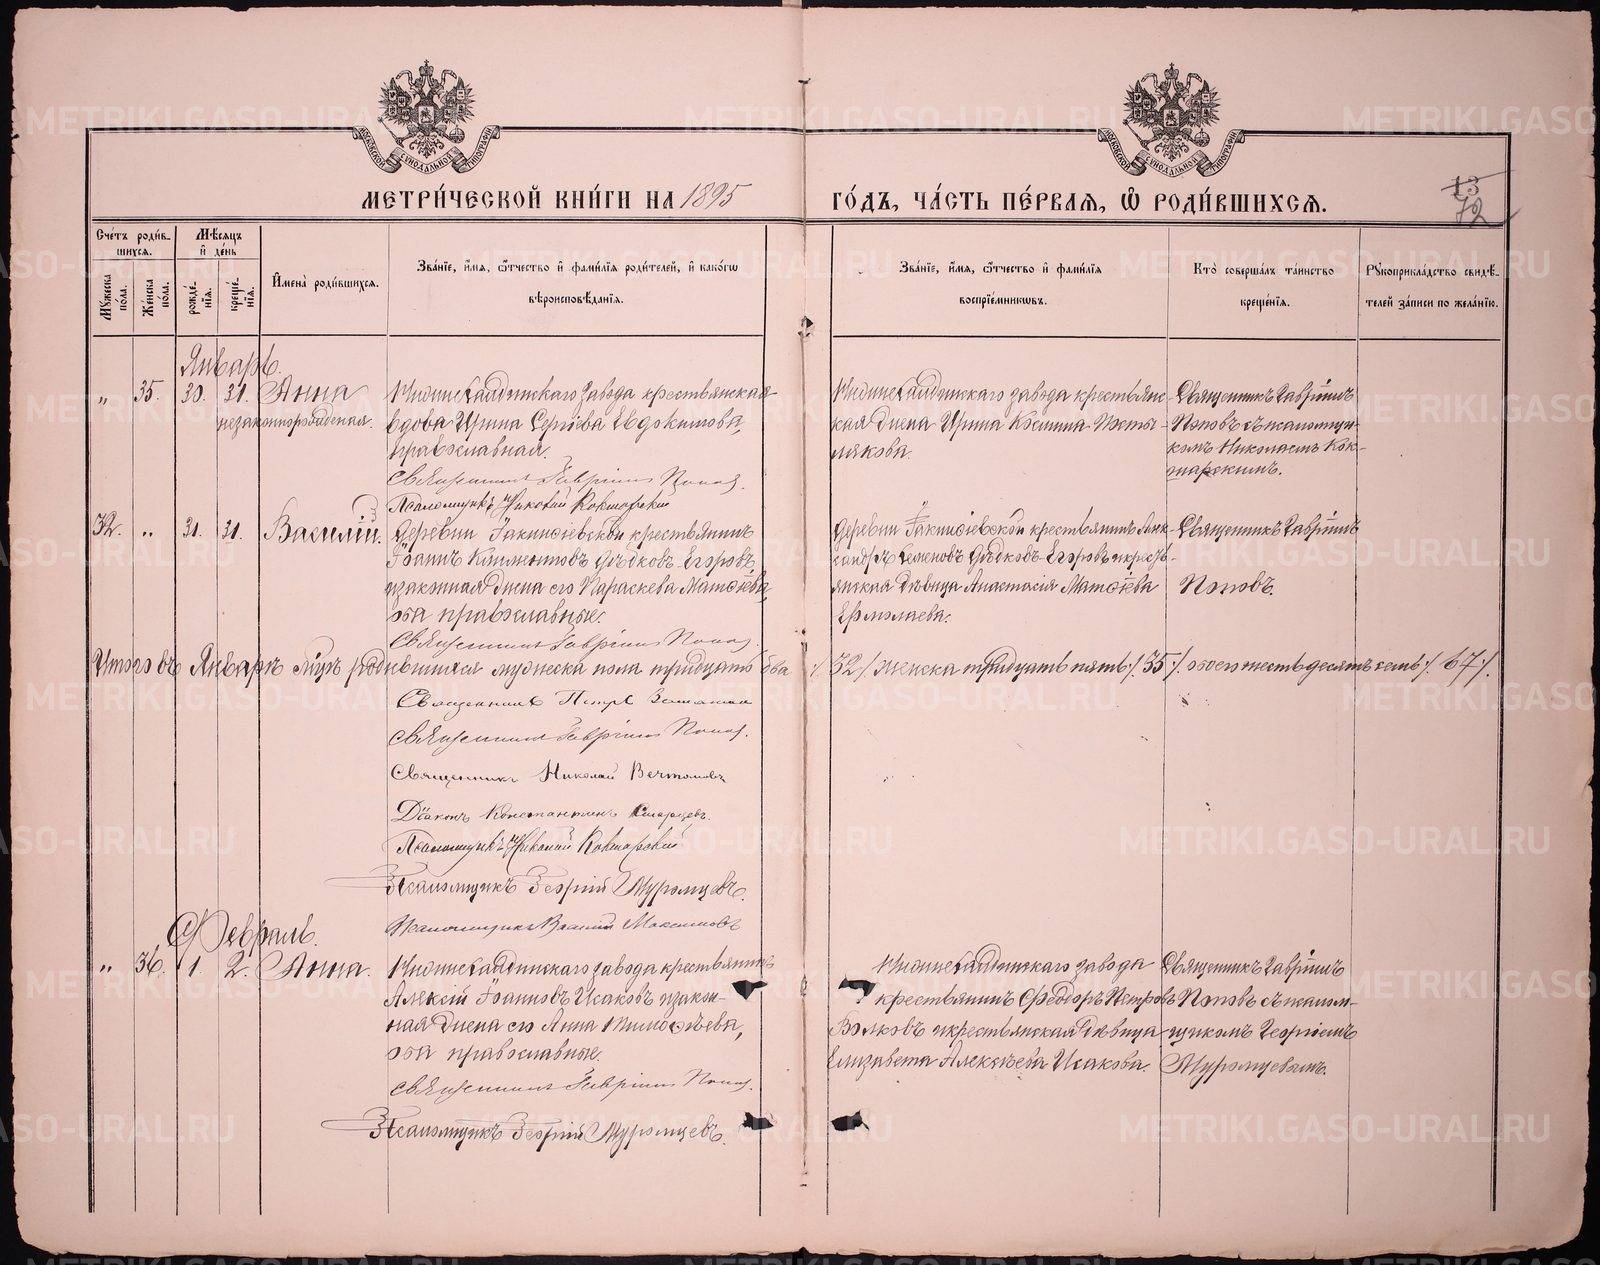 МЕТРИ́ЧЕСКОЙ КНИ́ГИ НА 1895
ГО́ДЪ, ЧА́СТЬ ПЕ́РВАЯ, Ѽ РОДИ́ВШИХСѦ.
13
72
Сче́тъ роди́в-
шихся.
Мѣсяцъ
и́ де́нь
Му́жеска
по́ла.
Же́нска
по́ла.
рожде́-
нія.
креще́-
нія.
И́мена̀ роди́вшихся.
Зва́ніе, и́мя, ѻ́тчество и́ фами́лія роди́телей, и́ како́гѡ
вѣроисповѣ́данія.
Зва́ніе, и́мя, ѻ́тчество и́ фами́лія
воспріе́мникѡвъ.
Кто̀ соверша́лъ та́инство
креще́нія.
Рꙋкоприкла́дство свидѣ́-
телей за́писи по жела́нію.
Январь.
„ 35. 30. 31. Анна
незаконнорожденая.
Нижнесалдинскаго завода крестьянская
вдова Ирина Сергіева Евдокимова,
православная.
Священникъ Гавріилъ Поповъ.
Псаломщикъ Николай Кокшарскій
Нижнесалдинскаго завода крестьянс-
кая жена Ирина Козмина
Священникъ Гавріилъ
Поповъ съ псаломщи-
комъ Николаемъ Кок-
шарскимъ.
32. „ 31. 31. Василій.
Деревни крестьянинъ
Іоаннъ Климентовъ Егоровъ
и законная жена его Параскева Матѳіева,
оба православные.
Священникъ Гавріилъ Поповъ.
Деревни крестьянинъ Алек-
сандръ Семеновъ Егоровъ и кресть-
янская дѣвица Анастасія Матѳіева
Ермолаева.
Священникъ Гавріилъ
Поповъ.
Итого въ Январѣ м-цѣ родившихся мужеска пола тридцать два /. 32 /. женска тридцать пять /. 35 /. обоего шестьдесятъ семь /. 67 /.
Священникъ Петръ
Священникъ Гавріилъ Поповъ.
Священникъ Николай Вечтомовъ
Діаконъ Константинъ
Псаломщикъ Николай Кокшарскій
Псаломщикъ Георгій Муромцевъ.
Псаломщикъ Василій Максимовъ
Февраль.
„ 36. 1. 2. Анна.
Нижнесалдинскаго завода крестьянинъ
Алексій Іоанновъ Исаковъ и закон-
ная жена его Анна Тимоѳѣева,
оба православные.
Священникъ Гавріилъ Поповъ.
Псаломщикъ Георгій Муромцевъ.
Нижнесалдинскаго завода
крестьянинъ Ѳеодоръ Петровъ
Волковъ и крестьянская дѣвица
Елизавета Алексѣева Исакова.
Священникъ Гавріилъ
Поповъ съ псалом-
щикомъ Георгіемъ
Муромцевымъ.
METRIKI.GASO-URAL.RU